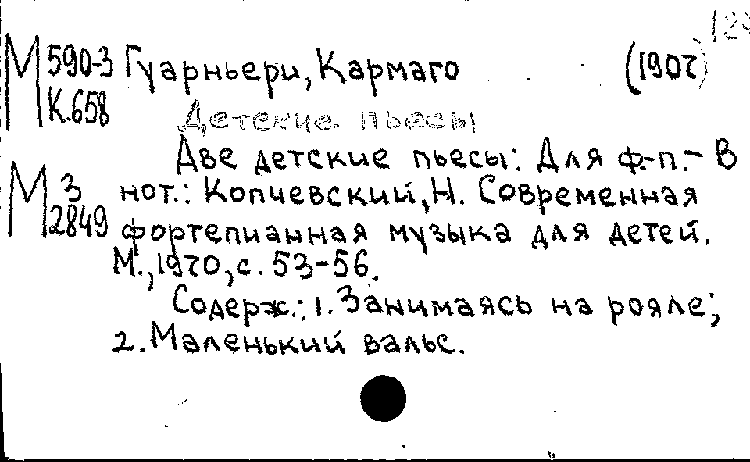 М 590-3 Гуарньери, Кармаго (1907)
К.658
Детские пьесы
Две детские пьесы: Для ф.-п. - В
М 3 нот.: Копчевский, Н. Современная
2849 фортепианная музыка для детей.
М., 1970, с. 53-56.
Содерж.: 1. Занимаясь на рояле;
2. Маленький вальс.